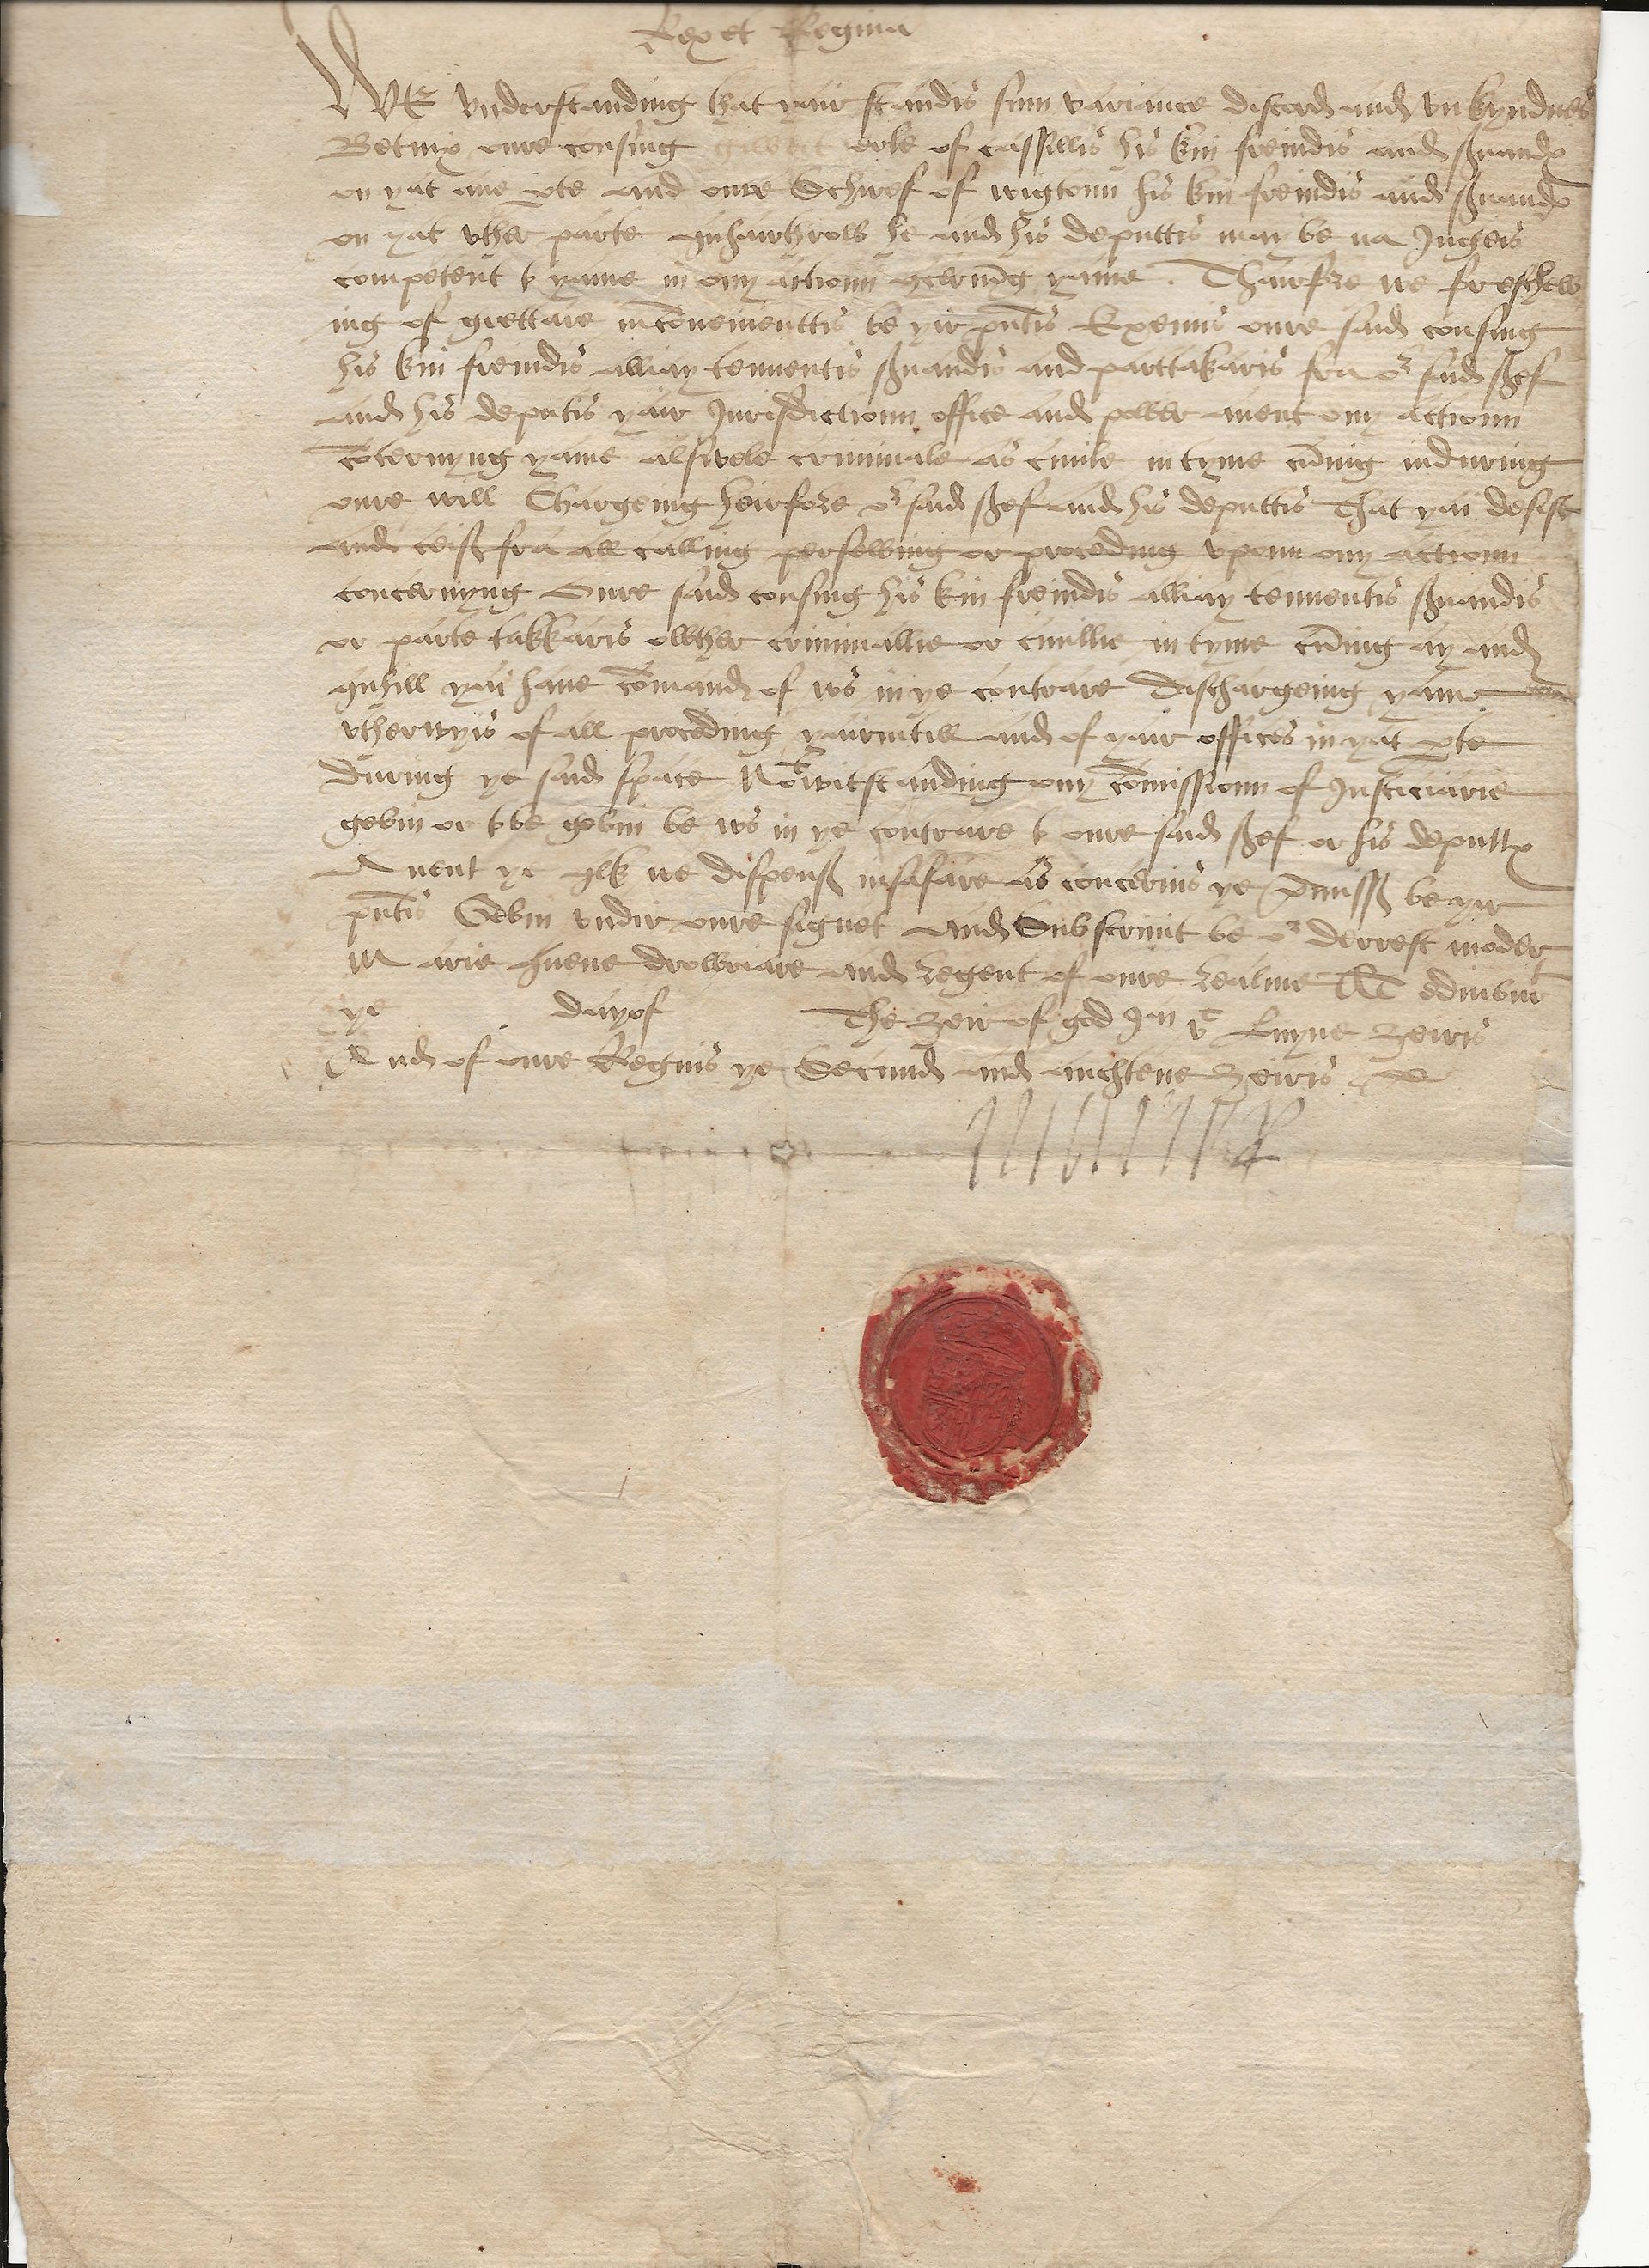 Rex et Regina
WE vnderstanding that yair standis sum variance discord and vnkyndnes
Betuix oure cousing gilbert erle of cassillis his kin freindis and s͞ruand
on yat ane p͞te and oure Schiref of wigtoun his kin freindis and s͞ruand
on yat vther parte quhairthrow he and his deputtis may be na Jugeis
competent to yame in ony actioun ꝯcern͞ig yame . Thairfore we for eschew
ing of grettare in͞convenienttis be yir p͞ntis Exemis oure said cousing
his kin freindis alliay tennentis s͞ruandis and parttakaris fra oʳ said s͞ref
and his deputis yair Jurisdictioun office and power anent ony actioun
c͞ocernyng yame alswele criminale as ciuile in tyme c͞uming induring
oure will Chargeing heirfore oʳ said s͞ref and his deputtis That yai desist
and ceiß fra all calling persewing or proceding vpoun ony actioun
concernyng Oure said cousing his kin freindis alliay tennentis s͞ruandis
or parte takkaris owther criminallie or ciuillie in tyme c͞uming ay and
quhill yai haue c͞omand of ws in ye contrare Dischargeing yame
vtherwyis of all proceding yairintill and of yair offices in yat p͞te
During ye said space Noᵗwitstanding ony c͞omissioun of Justiciarie
gevin or to be gevin be ws in ye contrare to oure said s͞ref or his deputt
Anent ye qlk we dispenß insafare as concernis ye p͞miss be yir
p͞ntis Gevin vndir oure signet And Subscriuit be oʳ derrest moder
Marie quene drowriare and Regent of oure Realme At edinburᵗ
ye day of The Zeir of god Jᵐ vᶜ Lixyne Zeiris
And of oure Regnis ye Secund and auchtene Zeiris
MARIE R